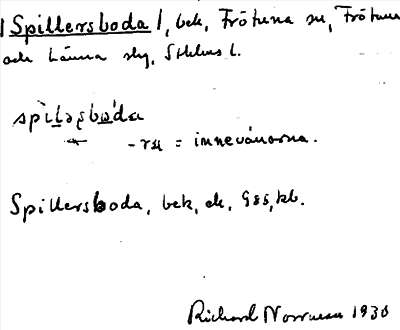 [Spillersboda], bek, Frötuna sn, Frötuna
och Länna slg, Sthlms l.
spìləʂbὼda
-ru = innevånarna.
Spillersboda, bek, ek, GSS, kb.
Richard Norrman 1930